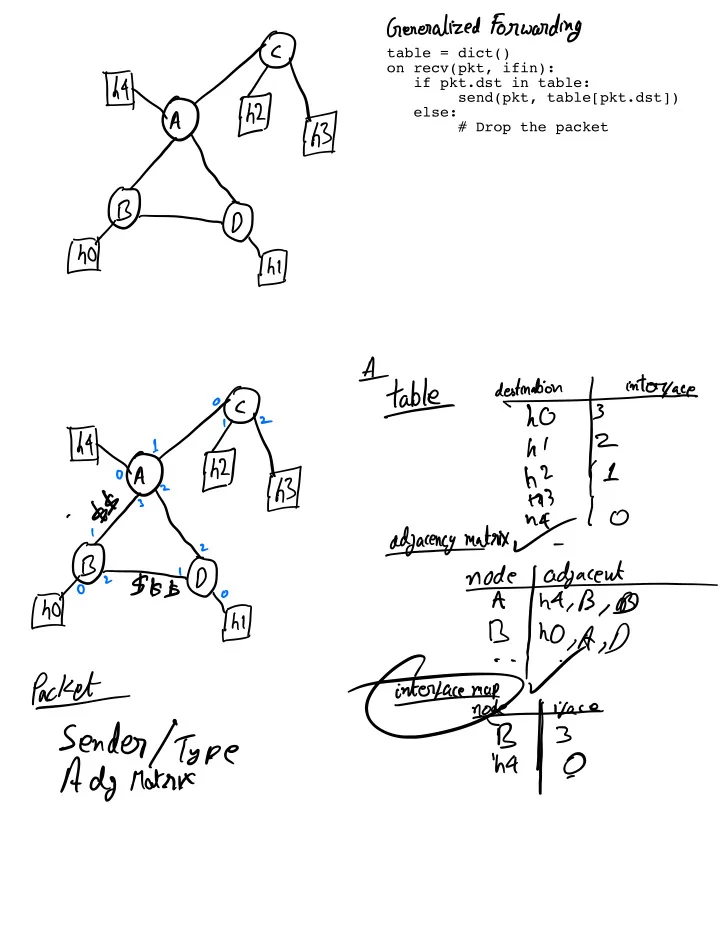 Generalized Forwarding
table = dict()
on recv(pkt, ifin):
if pkt.dst in table:
send(pkt, table[pkt.dst])
else:
# Drop the packet
C
h4
A
h2
h3
B
D
h0
h1
A
table
destination interface
h0 3
h1 2
h2 1
h3
h4 0
adjacency matrix
node adjacent
A h4, B, D
B h0, A, D
. .
interface map
node iface
B 3
h4 0
0 C
1 2
h4
1
0 A
2
h2
3
h3
$$
1
B
2
0
$$$
2
1 D
0
h0
h1
Packet
Sender/Type
Adj Matrix